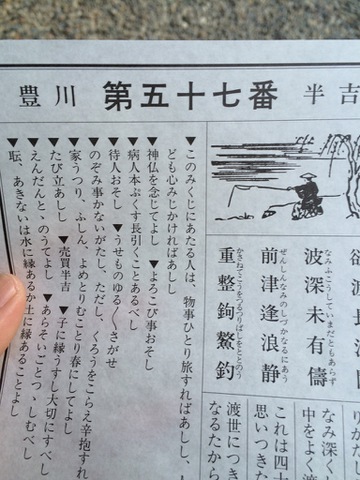 豊川 第五十七番 半吉
欲渡長
なみふこうしていまだともあらず
波深未有儔
ぜんしんなみのしづかなるにあう
前津逢浪静
重整鉤鰲釣
りがた
なみ深く
中をよく渡
これは四十
思いつきた
渡世につき
なるたから
▼このみくじにあたる人は、物事ひとり旅すればあしし、
ども心みじかければあしし
▼神仏を念じてよし ▼よろこび事おそし
▼病人本ぷくす長引くことあるべし
▼待人おそし ▼うせものゆるくさがせ
▼のぞみ事かないがたし、ただし、くろうをこらえ辛抱すれ
▼家うつり、ふしん、よめとりむことり春にしてよし
▼たび立あしし ▼売買半吉 ▼子に縁うすし大切にすべし
▼えんだんと、のうてよし ▼あらそいごとつゝしむべし
▼耘、あきないは水に縁あるか土に縁あることよし